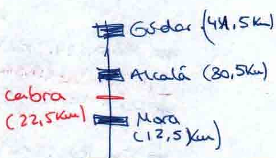 Gúdar (41,5Km)
Alcalá (30,5Km)
cabra
(22,5Km)
Mora
(12,5Km)